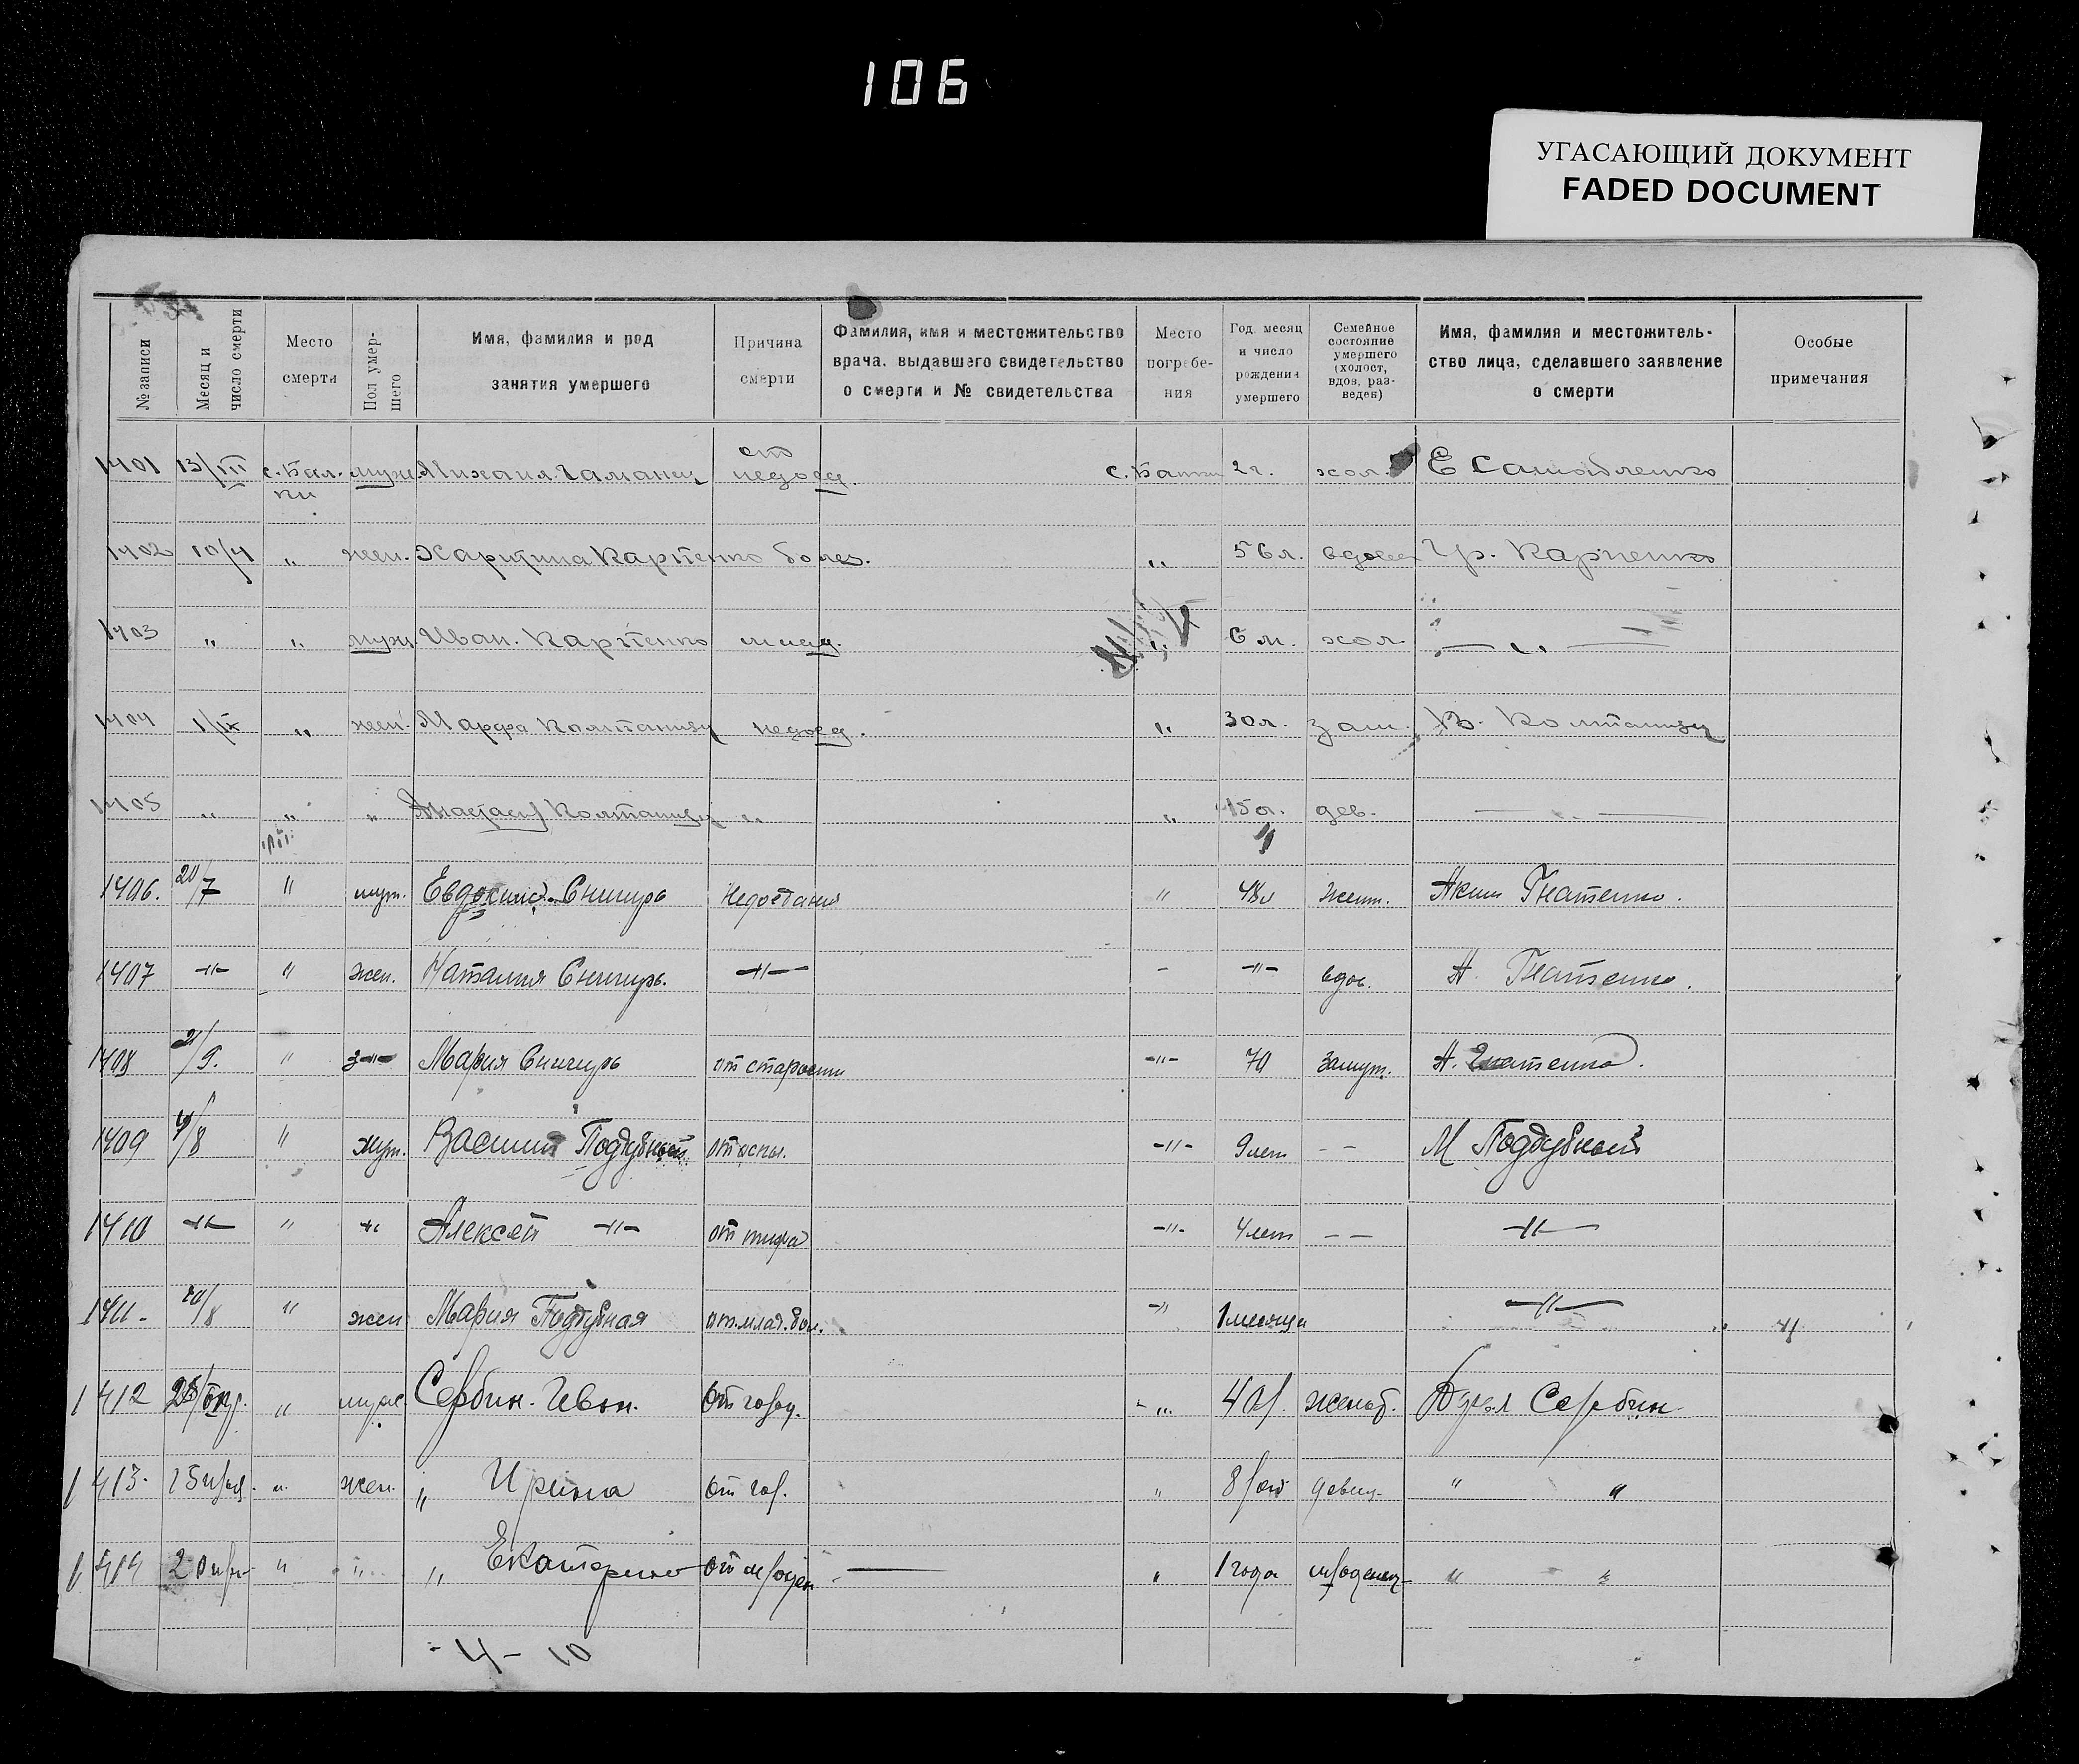 106
УГАСАЮЩИЙ ДОКУМЕНТ
FADED DOCUMENT
№ записи
Месяц и число смерти
Место смерти
Пол умершего
Имя, фамилия и род занятия умершего
Причина смерти
Фамилия, имя и местожительство врача, выдавшего свидетельство о смерти и № свидетельства
Место погребения
Год, месяц и число рождения умершего
Семейное состояние умершего (холост, вдов, разведен)
Имя, фамилия и местожительство лица, сделавшего заявление о смерти
Особые примечания
1401 13/III муж. Михаил недоед. 2 г. хол. Е
1402 10/4 " жен. Харитина Карпенко болез. " 56 л. Гр. Карпенко
1403 " " муж. Иван. Карпенко млад. " 6 м. хол — " —
1404 1/IX " жен. Марфа недоед. " 30 л. зам. В.
1405 " " " " " дев.
1406. 20/7 " муж. Снигирь Недоедания " 48 л женат. Аким Гнатенко.
1407 —"— " жен. Наталия Снигирь. —"— - —"— вдов. А. Гнатенко.
1408 /9. " Мария Снигирь от старости —"— 70 замуж. А. Гнатенко.
1409 /8 " муж. Василий Поддубный от оспы. —"— 9 лет — М Поддубный
1410 —"— " " Алексей —"— от тифа —"— 4 лет — — —"—
1411 - /8 " жен Мария Поддубная от млад. бол. —" 1 месяца —"— Ч
1412 " муж Сербин. Иван. От голод. " 40 л. женат. Сербин
1413. 15 " жен. " Ирина От гол. " 8 девиц. " "
1414 " " " Екатерина " 1 года младенец " "
- 4 - 10